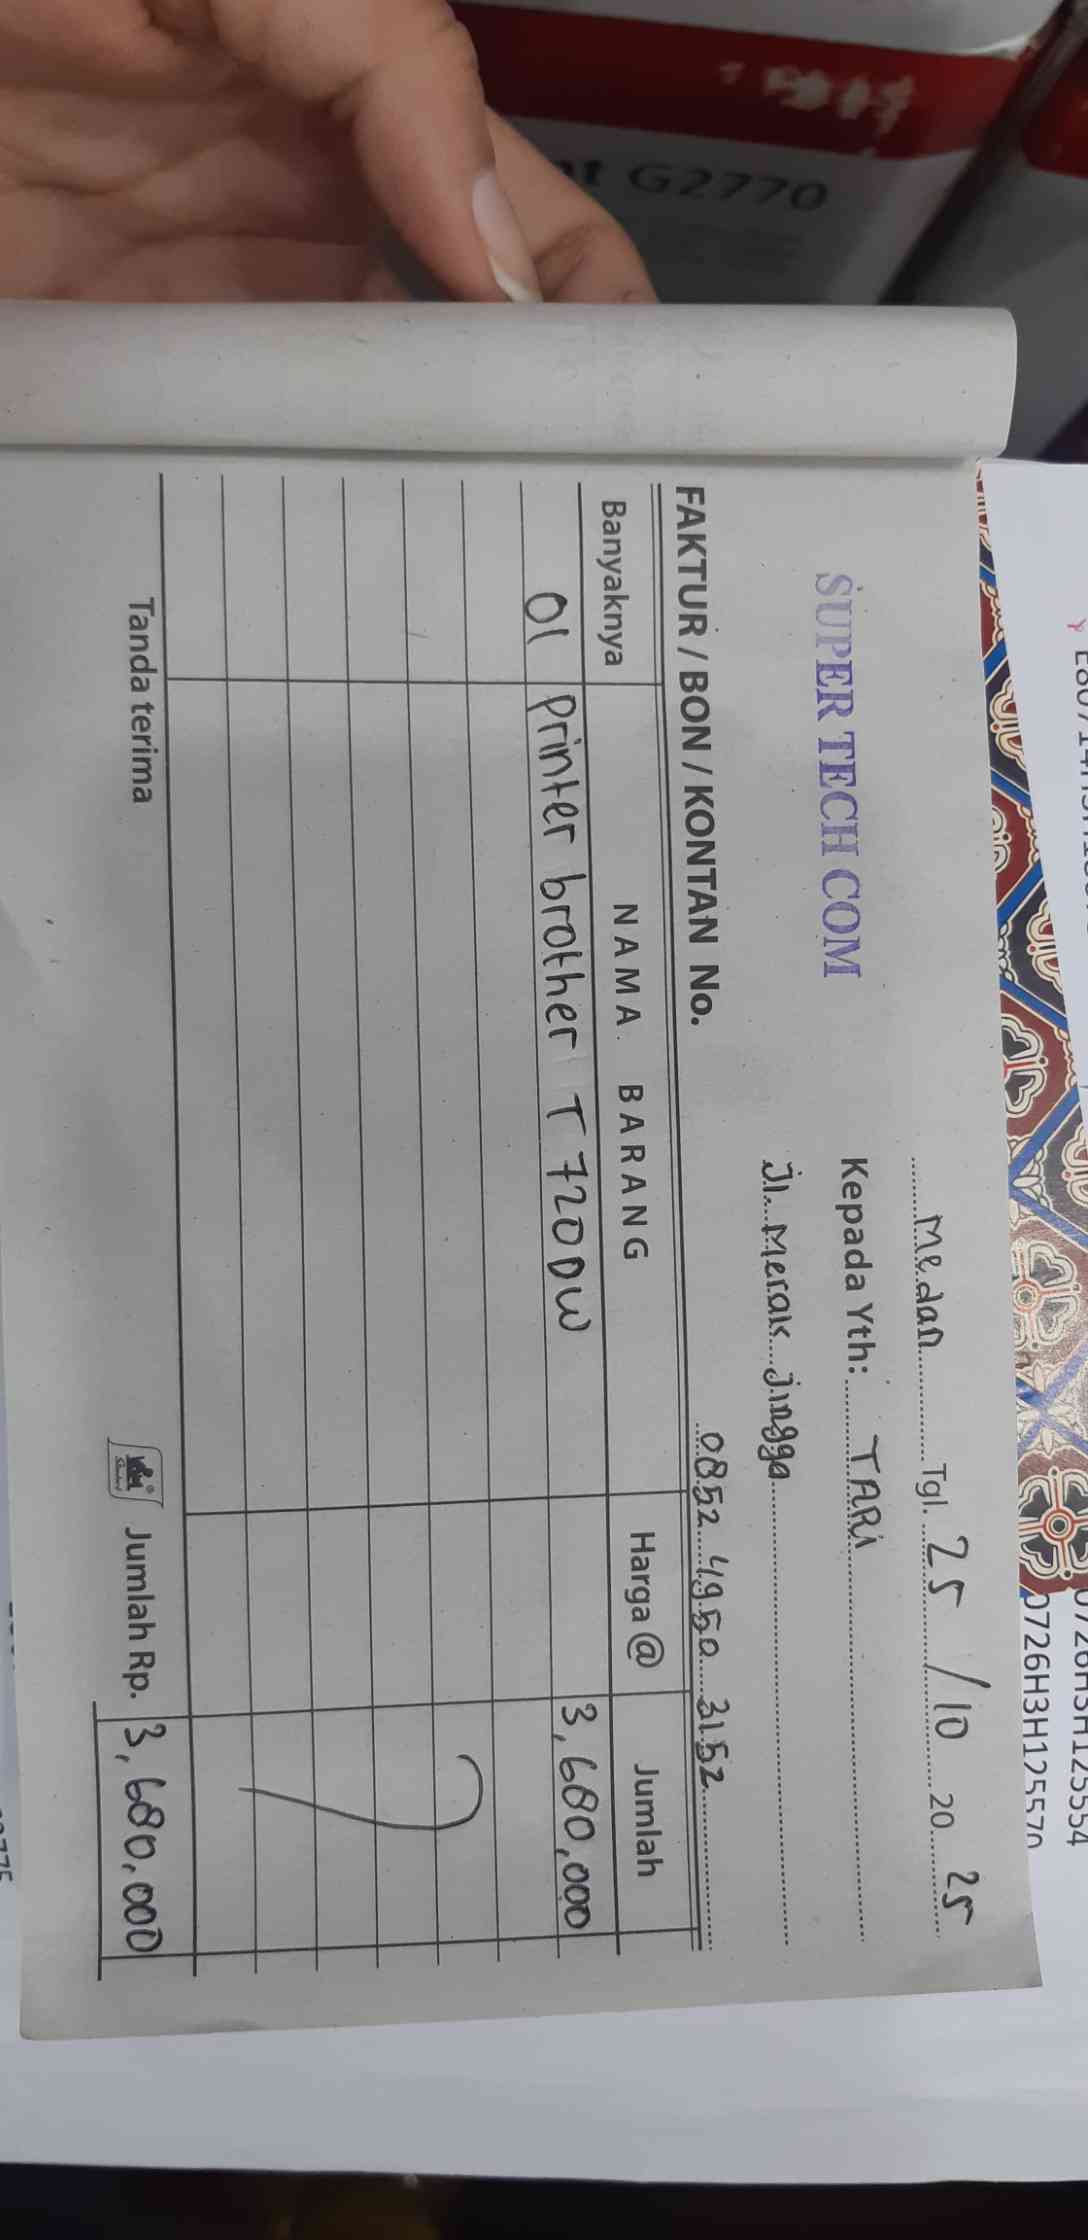 G2770
SUPER TECH COM
Medan Tgl. 25/10 2025
Kepada Yth: TARI
Jl. Merak Jingga
0852 4950 3152
FAKTUR / BON / KONTAN No.
Banyaknya NAMA BARANG Harga @ Jumlah
01 Printer brother T720DW 3,680,000
Tanda terima Jumlah Rp. 3,680.000
0726H3H125554
0726H3H125570